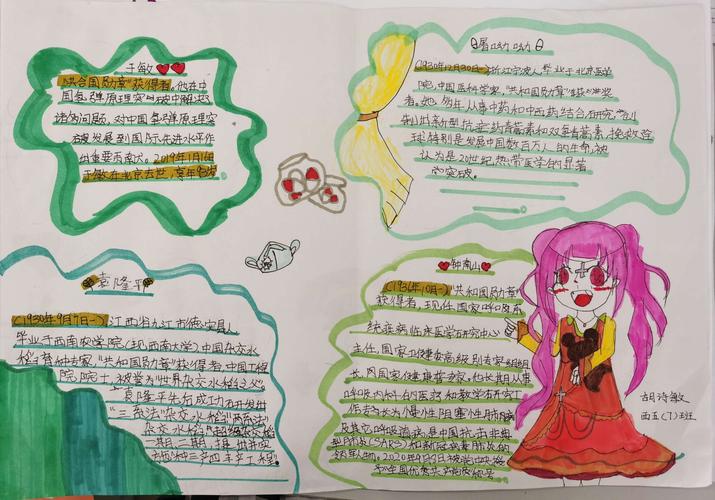 于敏
"共合国勋章"获得者。他在中
国氢弹原理突破中解决了
诸多问题,对中国氢弹原理突
破发展到国际先进水平作
出重要贡献。2019年1月16
于敏在北京去世,享年93岁
屠呦呦
(1930年12月30日一)浙江宁波人,毕业于北京医学
院,中国医科学家,"共和国勋章"获得者
者。她多年从事中药和中西药结合研究,创
制出新型抗疟药青蒿素和双氢青蒿素,挽救全
球特别是发展中国家数百万人的生命,被
认为是20世纪热带医学的显著
突破。
袁隆平
(1930年9月7日一)江西省九江市德安县人,
毕业于西南农学院(现西南大学)中国杂交水
稻育种专家,"共和国勋章"获得者,中国工程
院院士,被誉为"世界杂交水稻之父"
袁隆平先后成功研发出
"三系法"杂交水稻,"两系法"
杂交水稻,超级杂交稻
一期、二期
"种三产四丰产工程"
钟南山
(1936年10月一)"共和国勋章"
获得者,现任国家呼吸系
统疾病临床医学研究中心
主任,国家卫健委高级别专家组组
长,国家健康科普专家。他长期从事
呼吸内科的医疗、教学、科研工
作,专为慢性阻塞性肺病
及其它呼吸疾病,是中国抗击非典
型肺炎(SARS)和新冠我毒肺炎的
领军人物。2020年9月
胡诗敏
西五(7)班